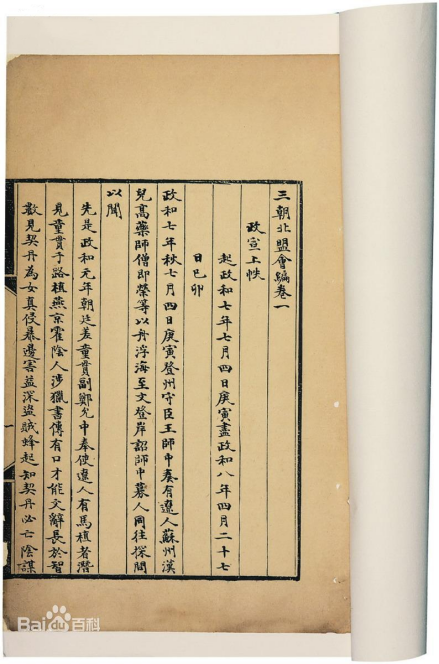 三朝北盟會編卷一
政宣上帙
起政和七年七月四日庚寅盡政和八年四月二十七
日己卯
政和七年秋七月四日庚寅登州守臣王師中奏有遼人蘇州漢
兒高藥師僧即榮等以舟浮海至文登岸詔師中募人同往探問
以聞
先是政和元年朝廷差童貫副鄭允中奉使遼人有馬植者潛
見童貫于路植燕京霍陰人涉獵書傳有口才能文辭長於智
數見契丹為女真侵暴邊害益深盜賊蜂起知契丹必亡陰謀
Bai百科